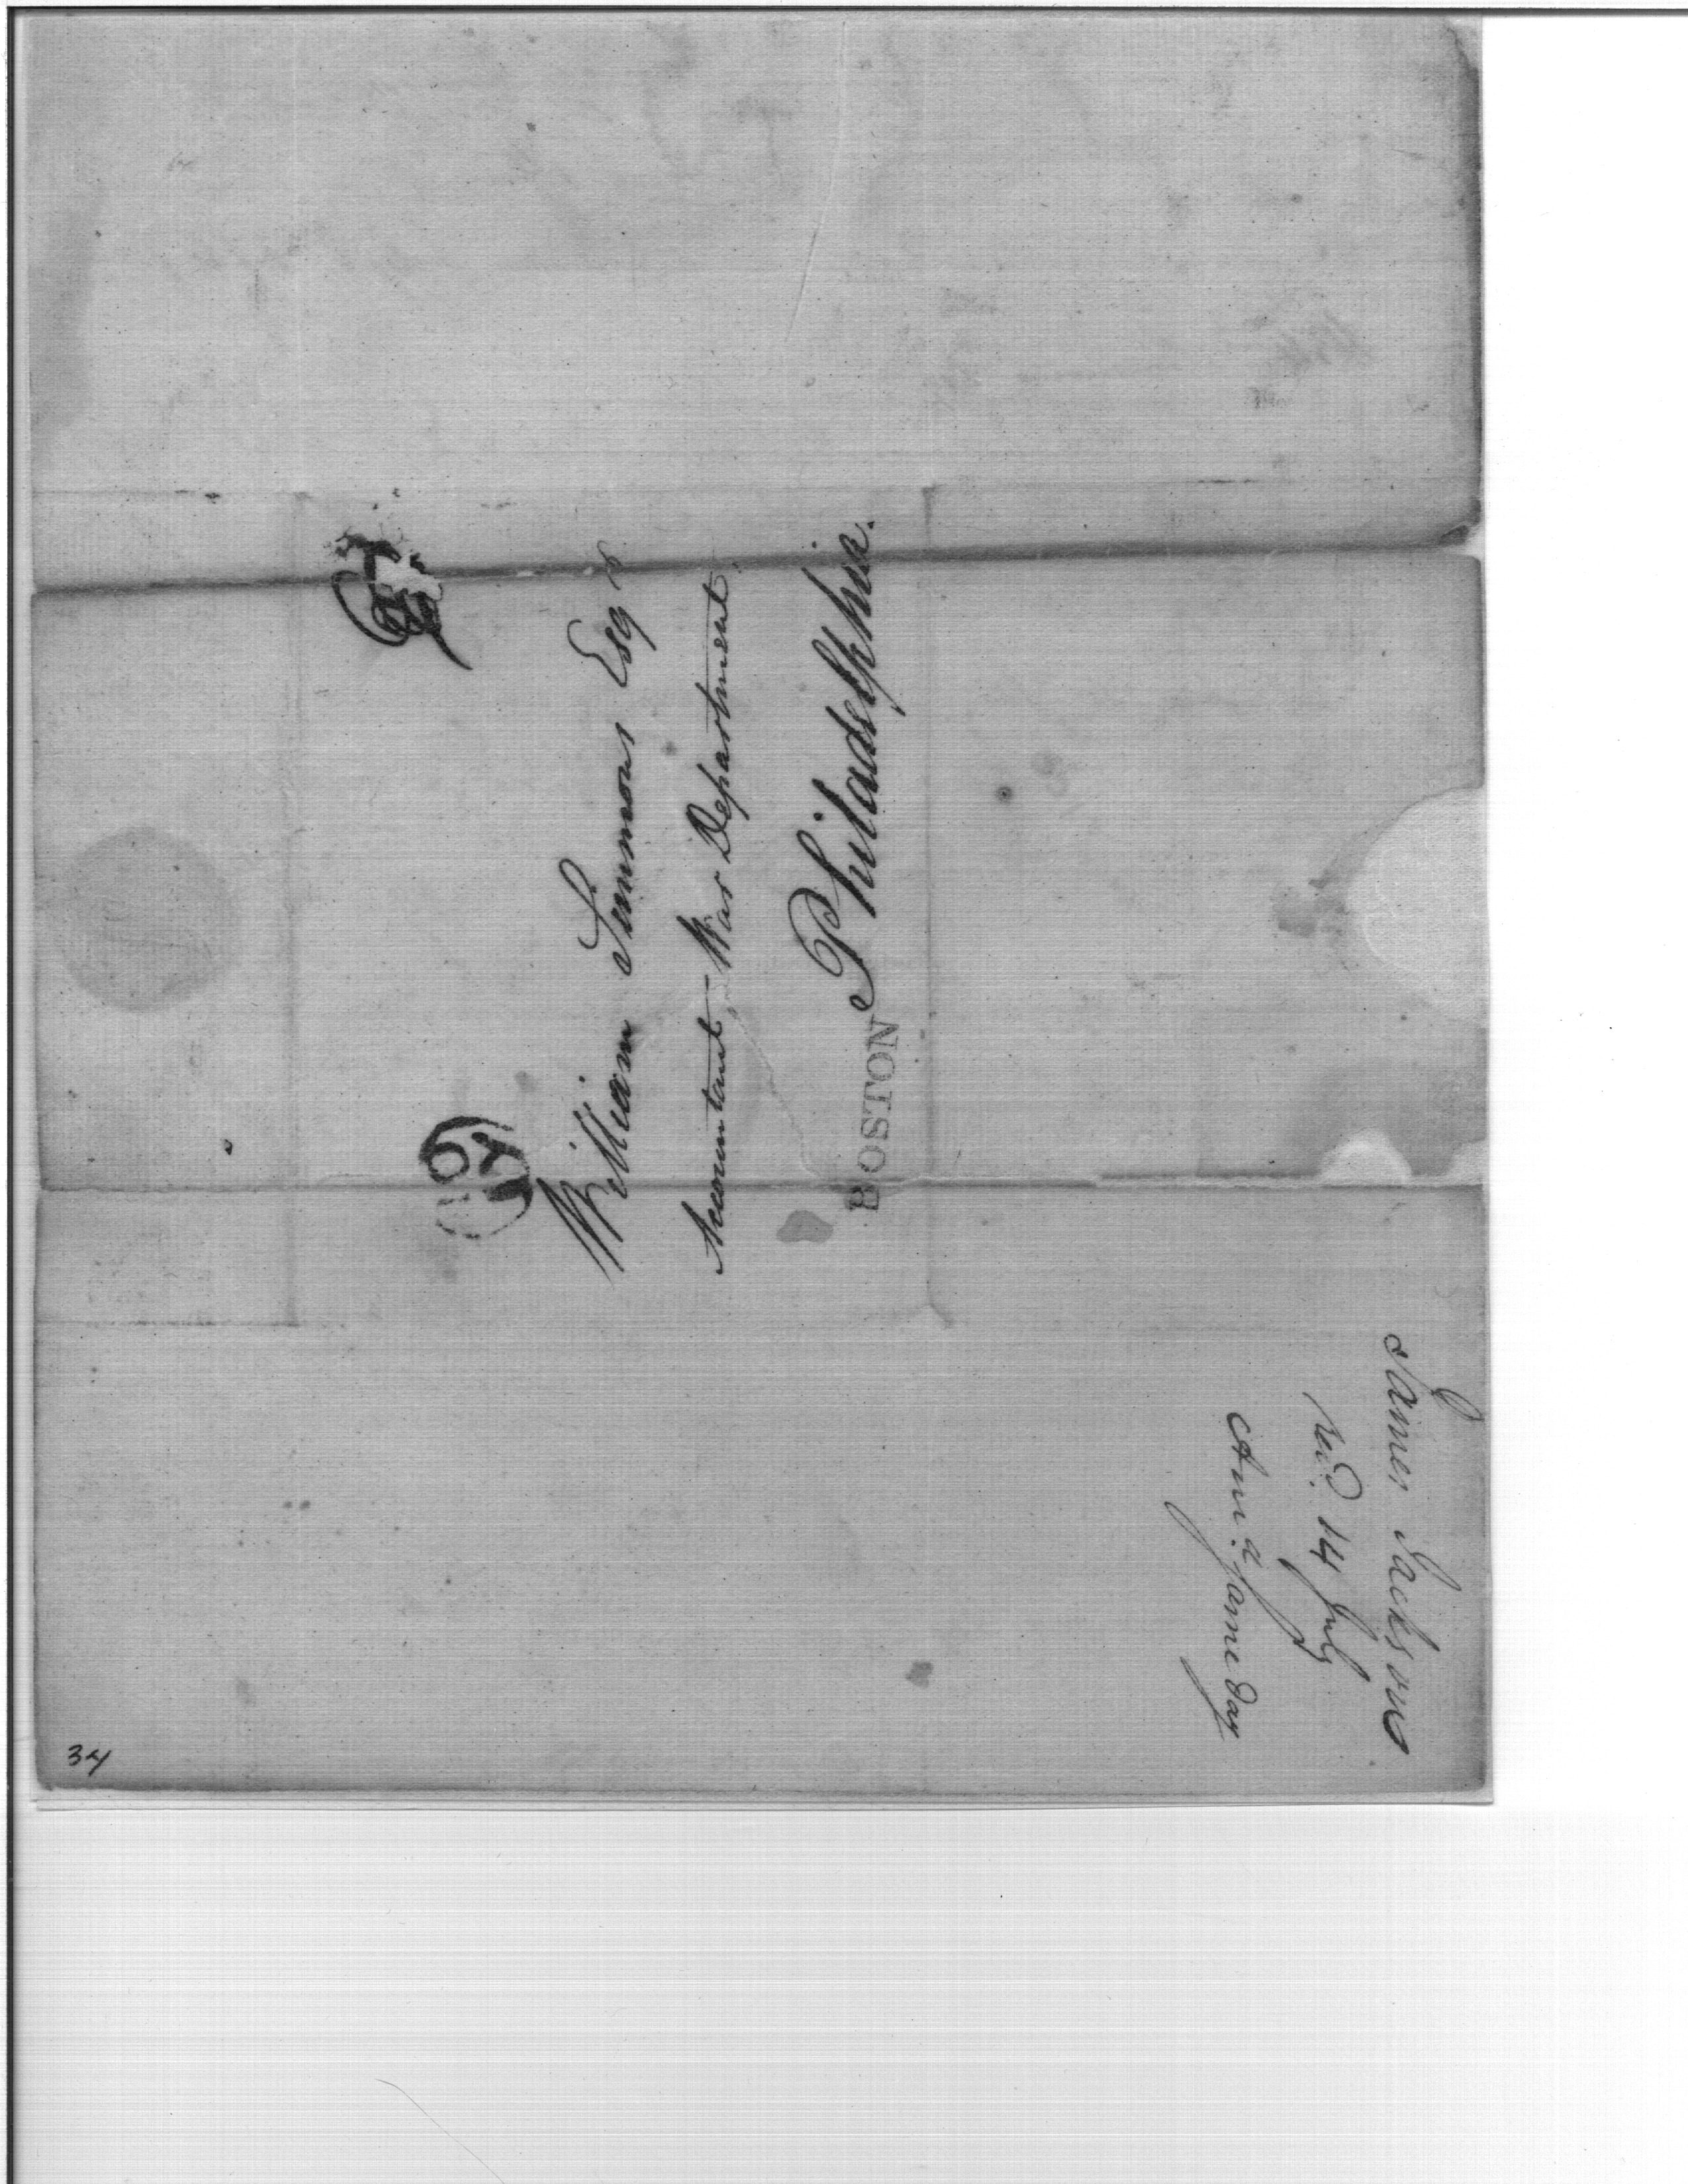 William Simmons Esqr
Accountant War Department
Philadelphia.
BOSTON
James Jackson
Recd. 14 July
Ansd. same day
34